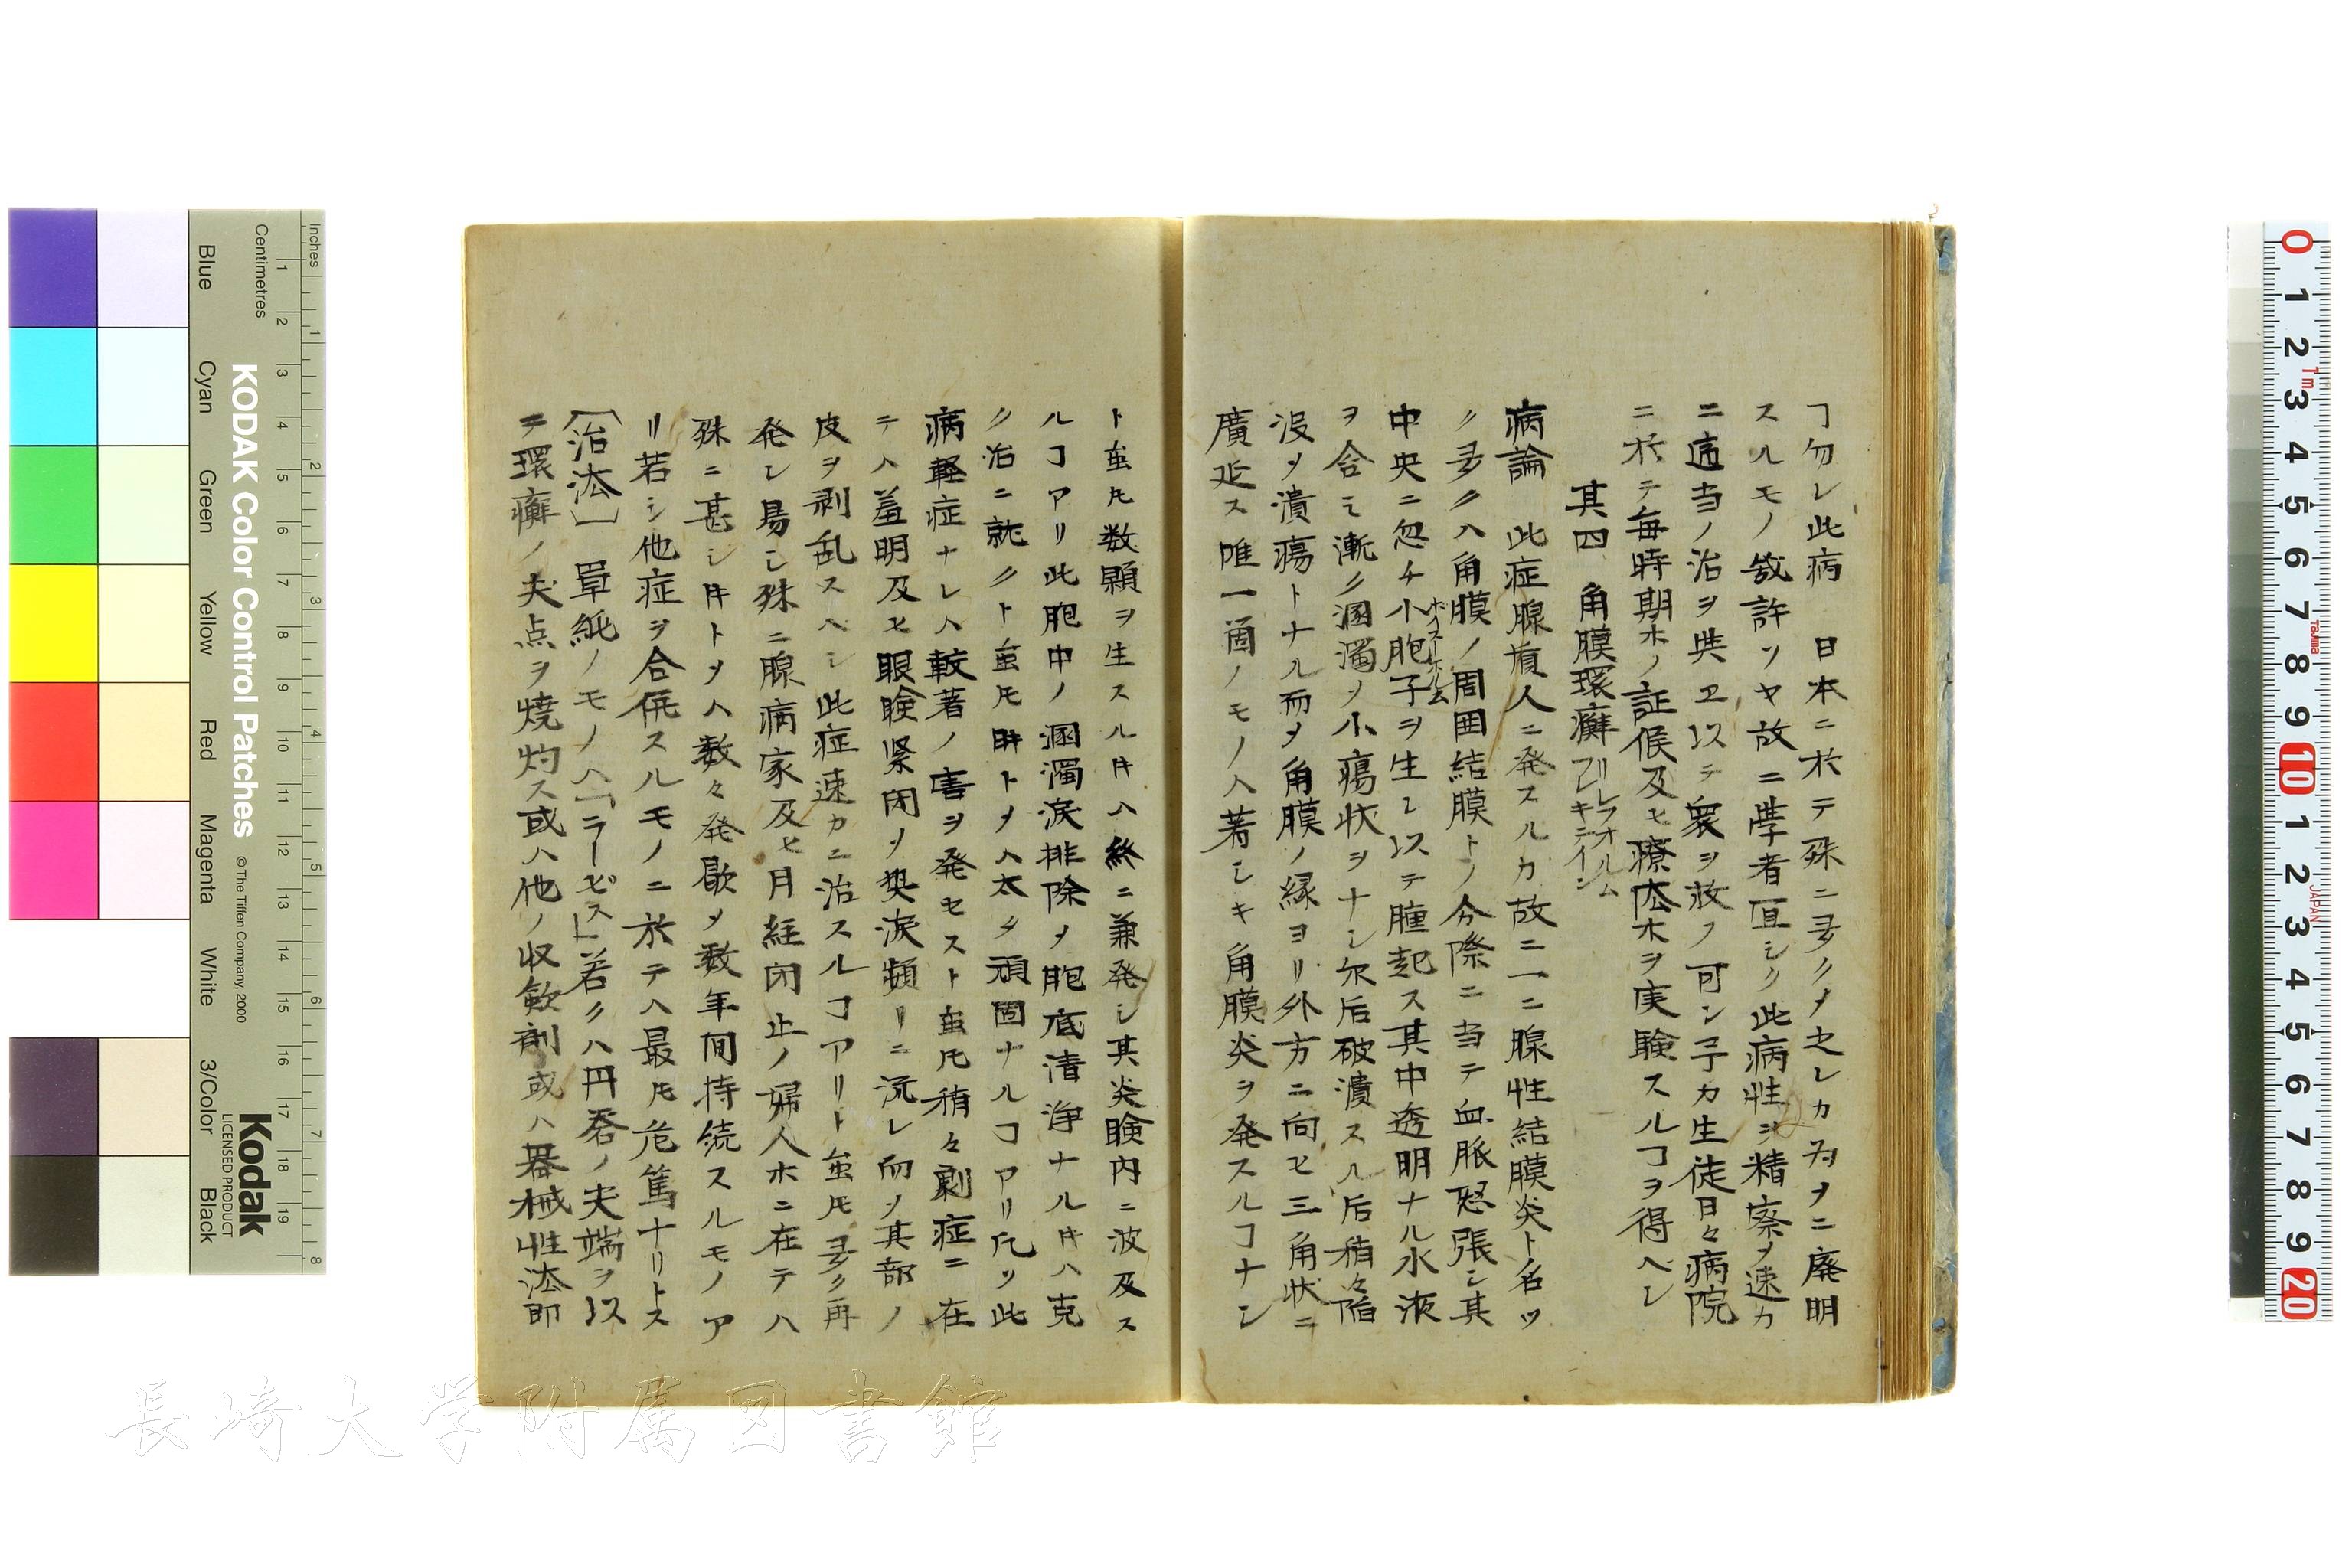 ヿ勿レ此病 日本ニ於テ殊ニ多クメ之レカ為メニ廃明
スルモノ幾許ソヤ故ニ学者宜シク此病性ヲ精察メ速カ
ニ適当ノ治ヲ与ヱ以テ衆ヲ救フ可ン予カ生徒日々病院
ニ於テ毎時期ホノ証候及ヒ療法ホヲ実験スルヿヲ得ヘシ
其四 角膜環癬
病論 此症腺病人ニ発スルカ故ニ一ニ腺性結膜炎ト名ツ
ク多クハ角膜ノ周囲結膜トノ分際ニ当テ血脈怒張シ其
中央ニ忽チ小胞子ヲ生シ以テ腫起ス其中透明ナル水液
ヲ含ミ漸ク溷濁メ小瘍状ヲナシ尓后破潰スル后稍々陥
没メ潰瘍トナル而メ角膜ノ縁ヨリ外方ニ向ヒ三角状ニ
廣延ス唯一箇ノモノハ著シキ角膜炎ヲ発スルヿナシ
ト虽𪜈数顆ヲ生スルキハ終ニ兼発シ其炎瞼内ニ波及ス
ルヿアリ此胞中ノ溷濁涙排除メ胞底清浄ナルキハ克
ク治ニ就クト虽𪜈時トメハ太タ頑固ナルヿアリ凡ソ此
病軽症ナレハ較著ノ害ヲ発セスト虽𪜈稍々劇症ニ在
テハ羞明及ヒ眼瞼緊閉メ熱涙頻リニ流レ而メ其部ノ
皮ヲ剥乱スヘシ此症速カニ治スルヿアリト虽𪜈多ク再
発シ易シ殊ニ腺病家及ヒ月経閉止ノ婦人ホニ在テハ
殊ニ甚シ時トメハ数々発歇メ数年间持続スルモノア
リ若シ他症ヲ合併スルモノニ於テハ最𪜈危篤ナリトス
〔治法〕 単純ノモノハ「ラーピス」若クハ丹礬ノ尖端ヲ以
テ環癬ノ尖点ヲ焼灼ス或ハ他ノ収斂剤或ハ器械性法即
長崎大学附属図書館
KODAK Color Control Patches
© The Tiffen Company, 2000
Kodak
LICENSED PRODUCT
Inches
Centimetres
Blue
Cyan
Green
Yellow
Red
Magenta
White
3/Color
Black
1 2 3 4 5 6 7 8 9 10 11 12 13 14 15 16 17 18 19
1 2 3 4 5 6 7 8
0 1 2 3 4 5 6 7 8 9 10 1 2 3 4 5 6 7 8 9 20
1m
TaJiMa
JAPAN